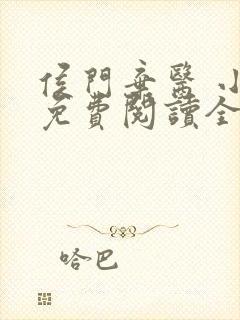 侯門棄醫 小
免費閱讀全
哈巴